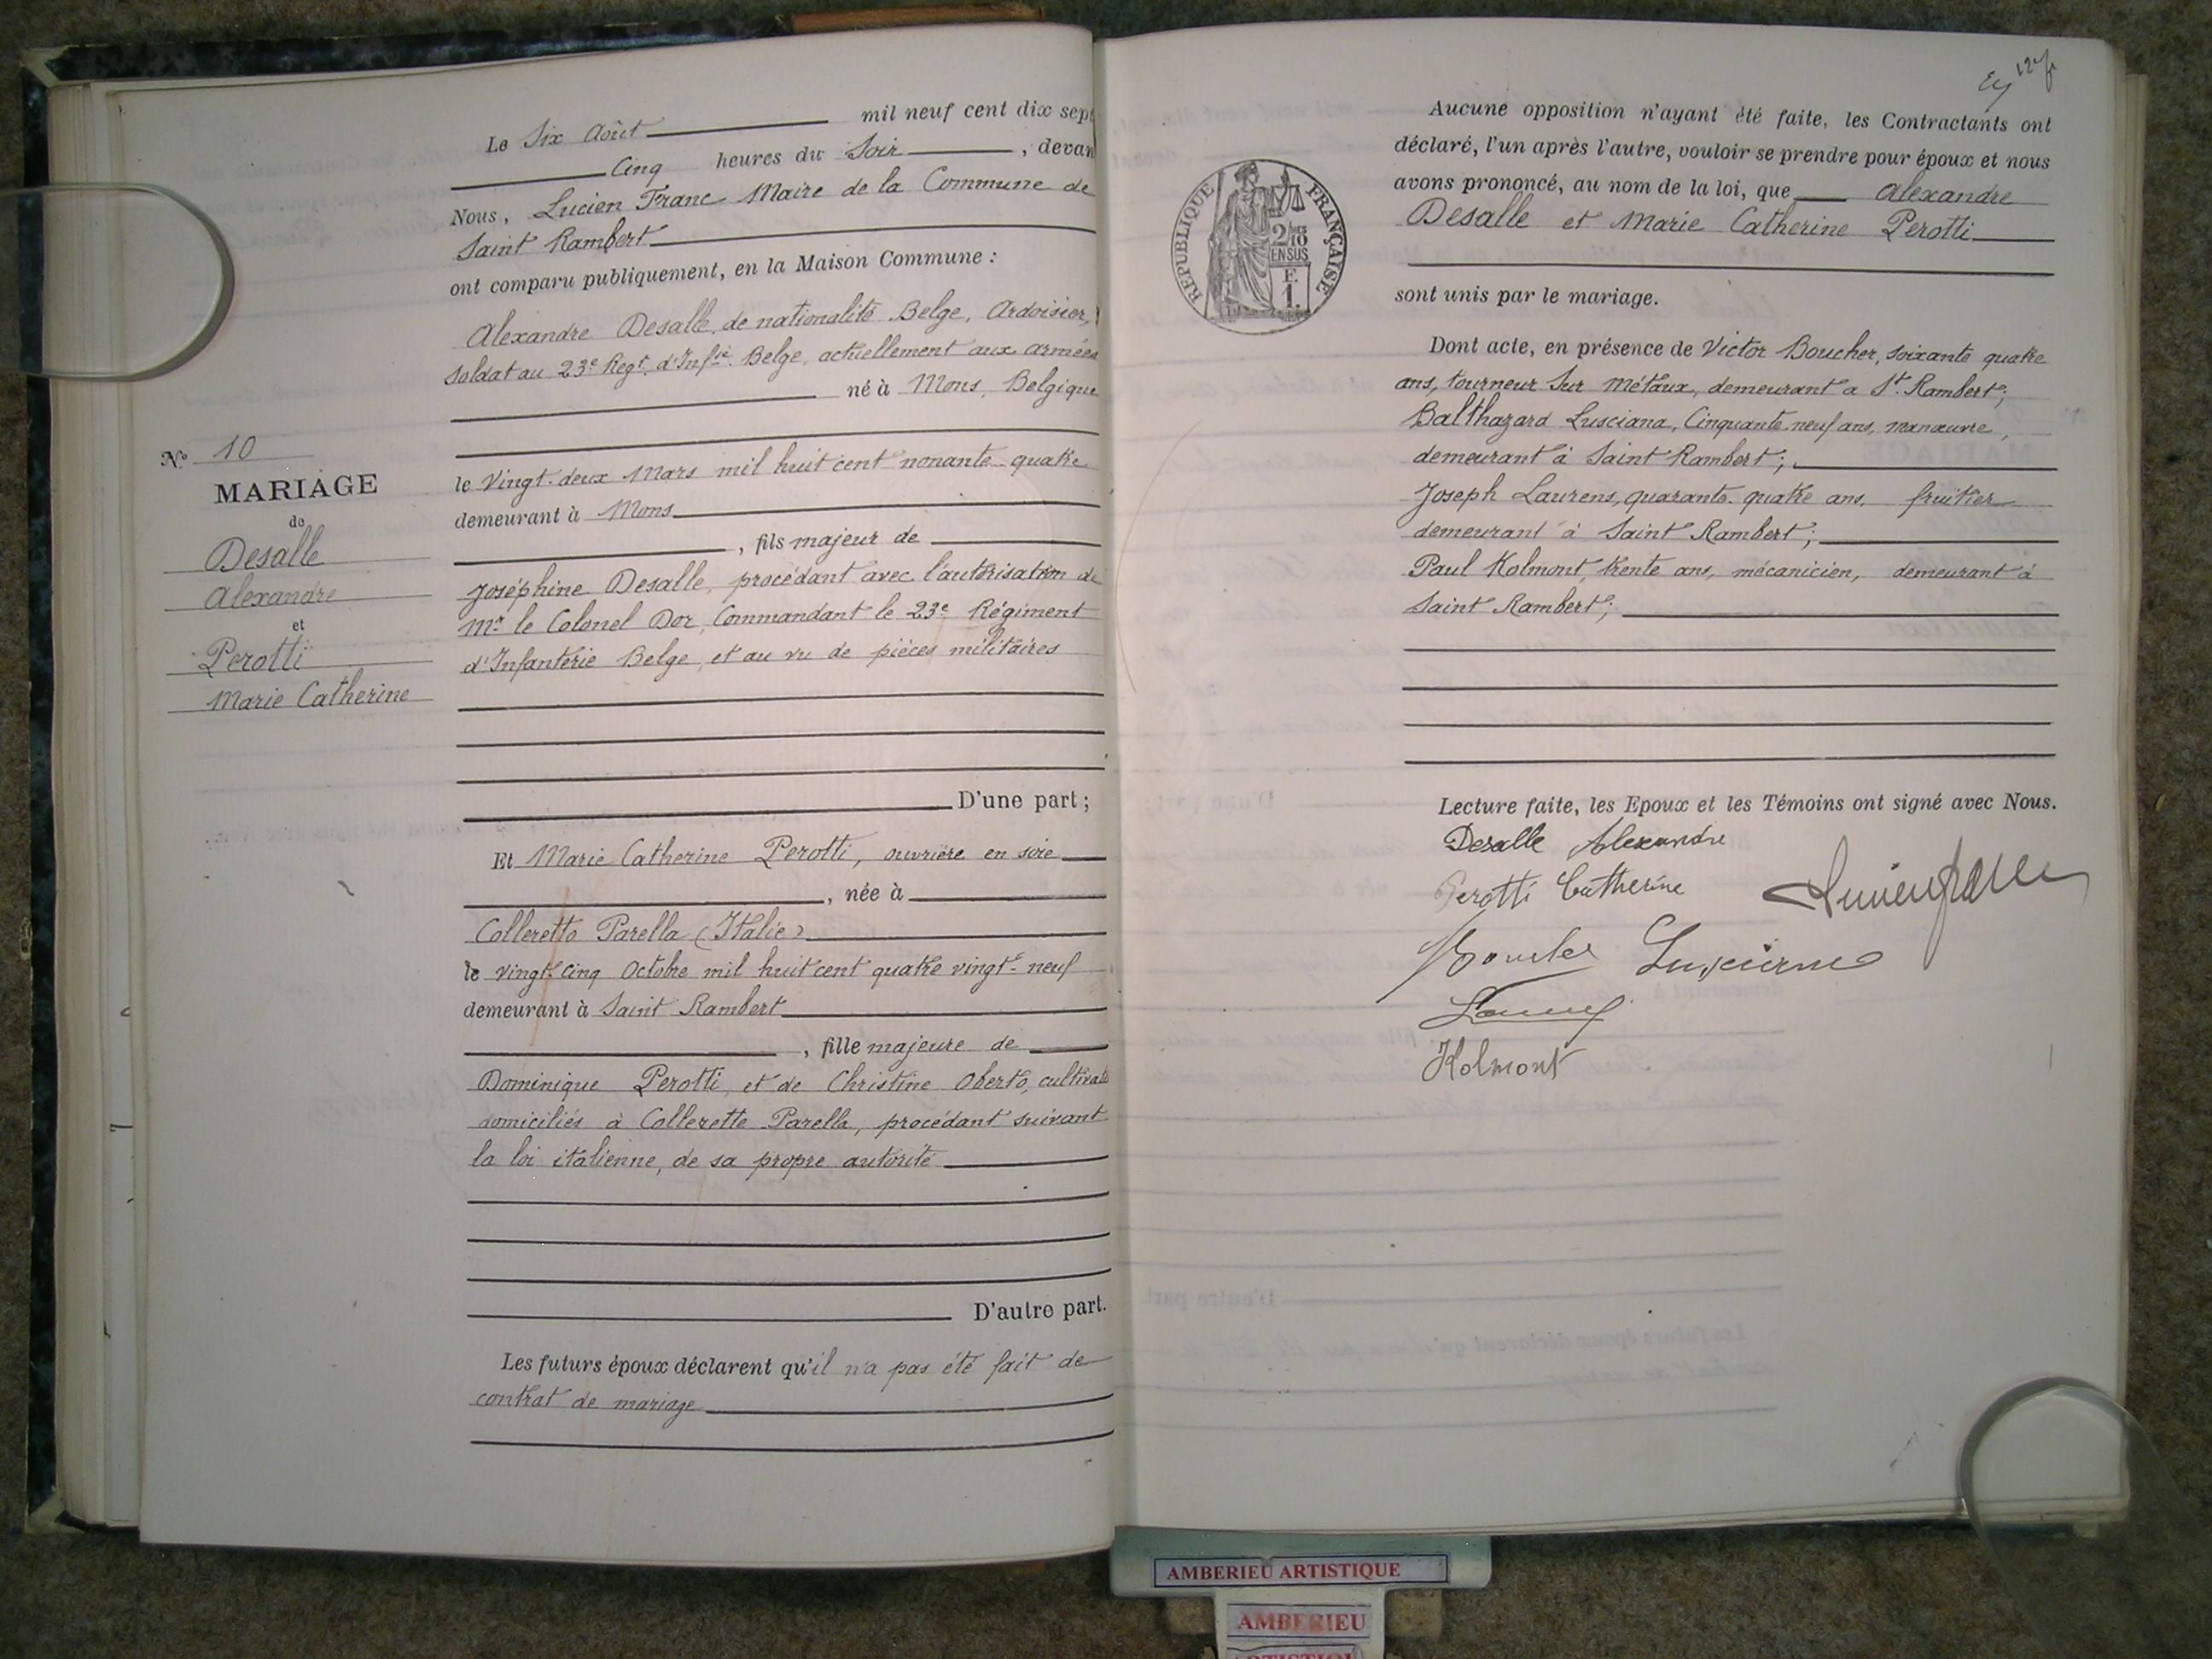 N° 10
MARIAGE
de
Desalle
Alexandre
et
Perotti
Marie Catherine
Le Six Août mil neuf cent dix sept
Cinq heures du Soir, devan
Nous, Lucien Franc Maire de la Commune de
Saint Rambert
ont comparu publiquement, en la Maison Commune :
Alexandre Desalle, de nationalité Belge, Ardoisier,
soldat au 23e Regt. d'Infie. Belge, actuellement aux armées
né à Mons, Belgique
le Vingt-deux Mars mil huit cent nonante quatre
demeurant à Mons
, fils majeur de
Joséphine Desalle, procédant avec l'autorisation de
Mr le Colonel Dor, Commandant le 23e Régiment
d'Infanterie Belge, et au vu de pièces militaires
D'une part ;
Et Marie Catherine Perotti, ouvrière en soie
, née à
Colleretto Parella (Italie)
le vingt-cinq Octobre mil huit cent quatre vingt-neuf
demeurant à Saint Rambert
, fille majeure de
Dominique Perotti, et de Christine Oberto, cultivat
domiciliés à Collerette Parella, procédant suivant
la loi italienne, de sa propre autorité
D'autre part.
Les futurs époux déclarent qu'il n'a pas été fait de
contrat de mariage
REPUBLIQUE FRANÇAISE
2/10
EN SUS
F.
1.
Aucune opposition n'ayant été faite, les Contractants ont
déclaré, l'un après l'autre, vouloir se prendre pour époux et nous
avons prononcé, au nom de la loi, que Alexandre
Desalle et Marie Catherine Perotti
sont unis par le mariage.
Dont acte, en présence de Victor Boucher, soixante quatre
ans, tourneur sur métaux, demeurant a St. Rambert;
Balthazard Lusciana, Cinquante-neuf ans, manœuvre,
demeurant à Saint Rambert;
Joseph Laurens, quarante-quatre ans, fruitier
demeurant à Saint Rambert;
Paul Kolmont, trente ans, mécanicien, demeurant à
Saint Rambert;
Lecture faite, les Epoux et les Témoins ont signé avec Nous.
Desalle Alexandre
Perotti Catherine
Boucher
Holmont
AMBERIEU ARTISTIQUE
AMBERIEU
ARTISTIQU